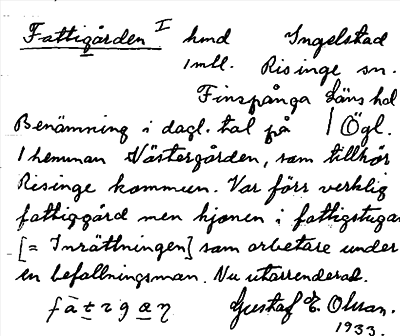 Fattigården I hmd Ingelstad
1 mtl. Risinge sn.
Finspånga läns hd
Benämning i dagl. tal på / Ögl.
1 hemman Västergården, som tillhör
Risinge kommun. Var förr verklig
fattiggård men hjonen i fattigstugan
[= Inrättningen] som arbetare under
en befallningsman. Nu utarrenderad.
Gustaf E. Olsson.
1933.